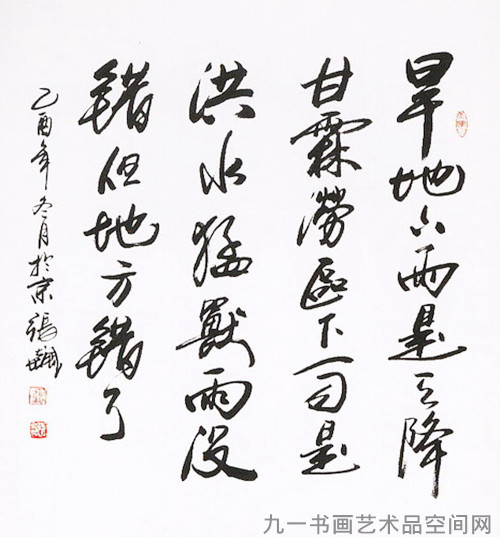 旱地下雨是天降
甘霖澇區下雨是
洪水猛獸雨没
錯但地方錯了
乙酉年冬月於京張
九一书画艺术品空间网